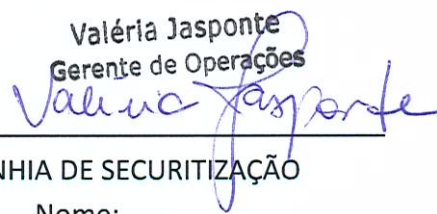 Valéria Jasponte
Gerente de Operações
Valéria Jasponte
NHIA DE SECURITIZAÇÃO
Nome: